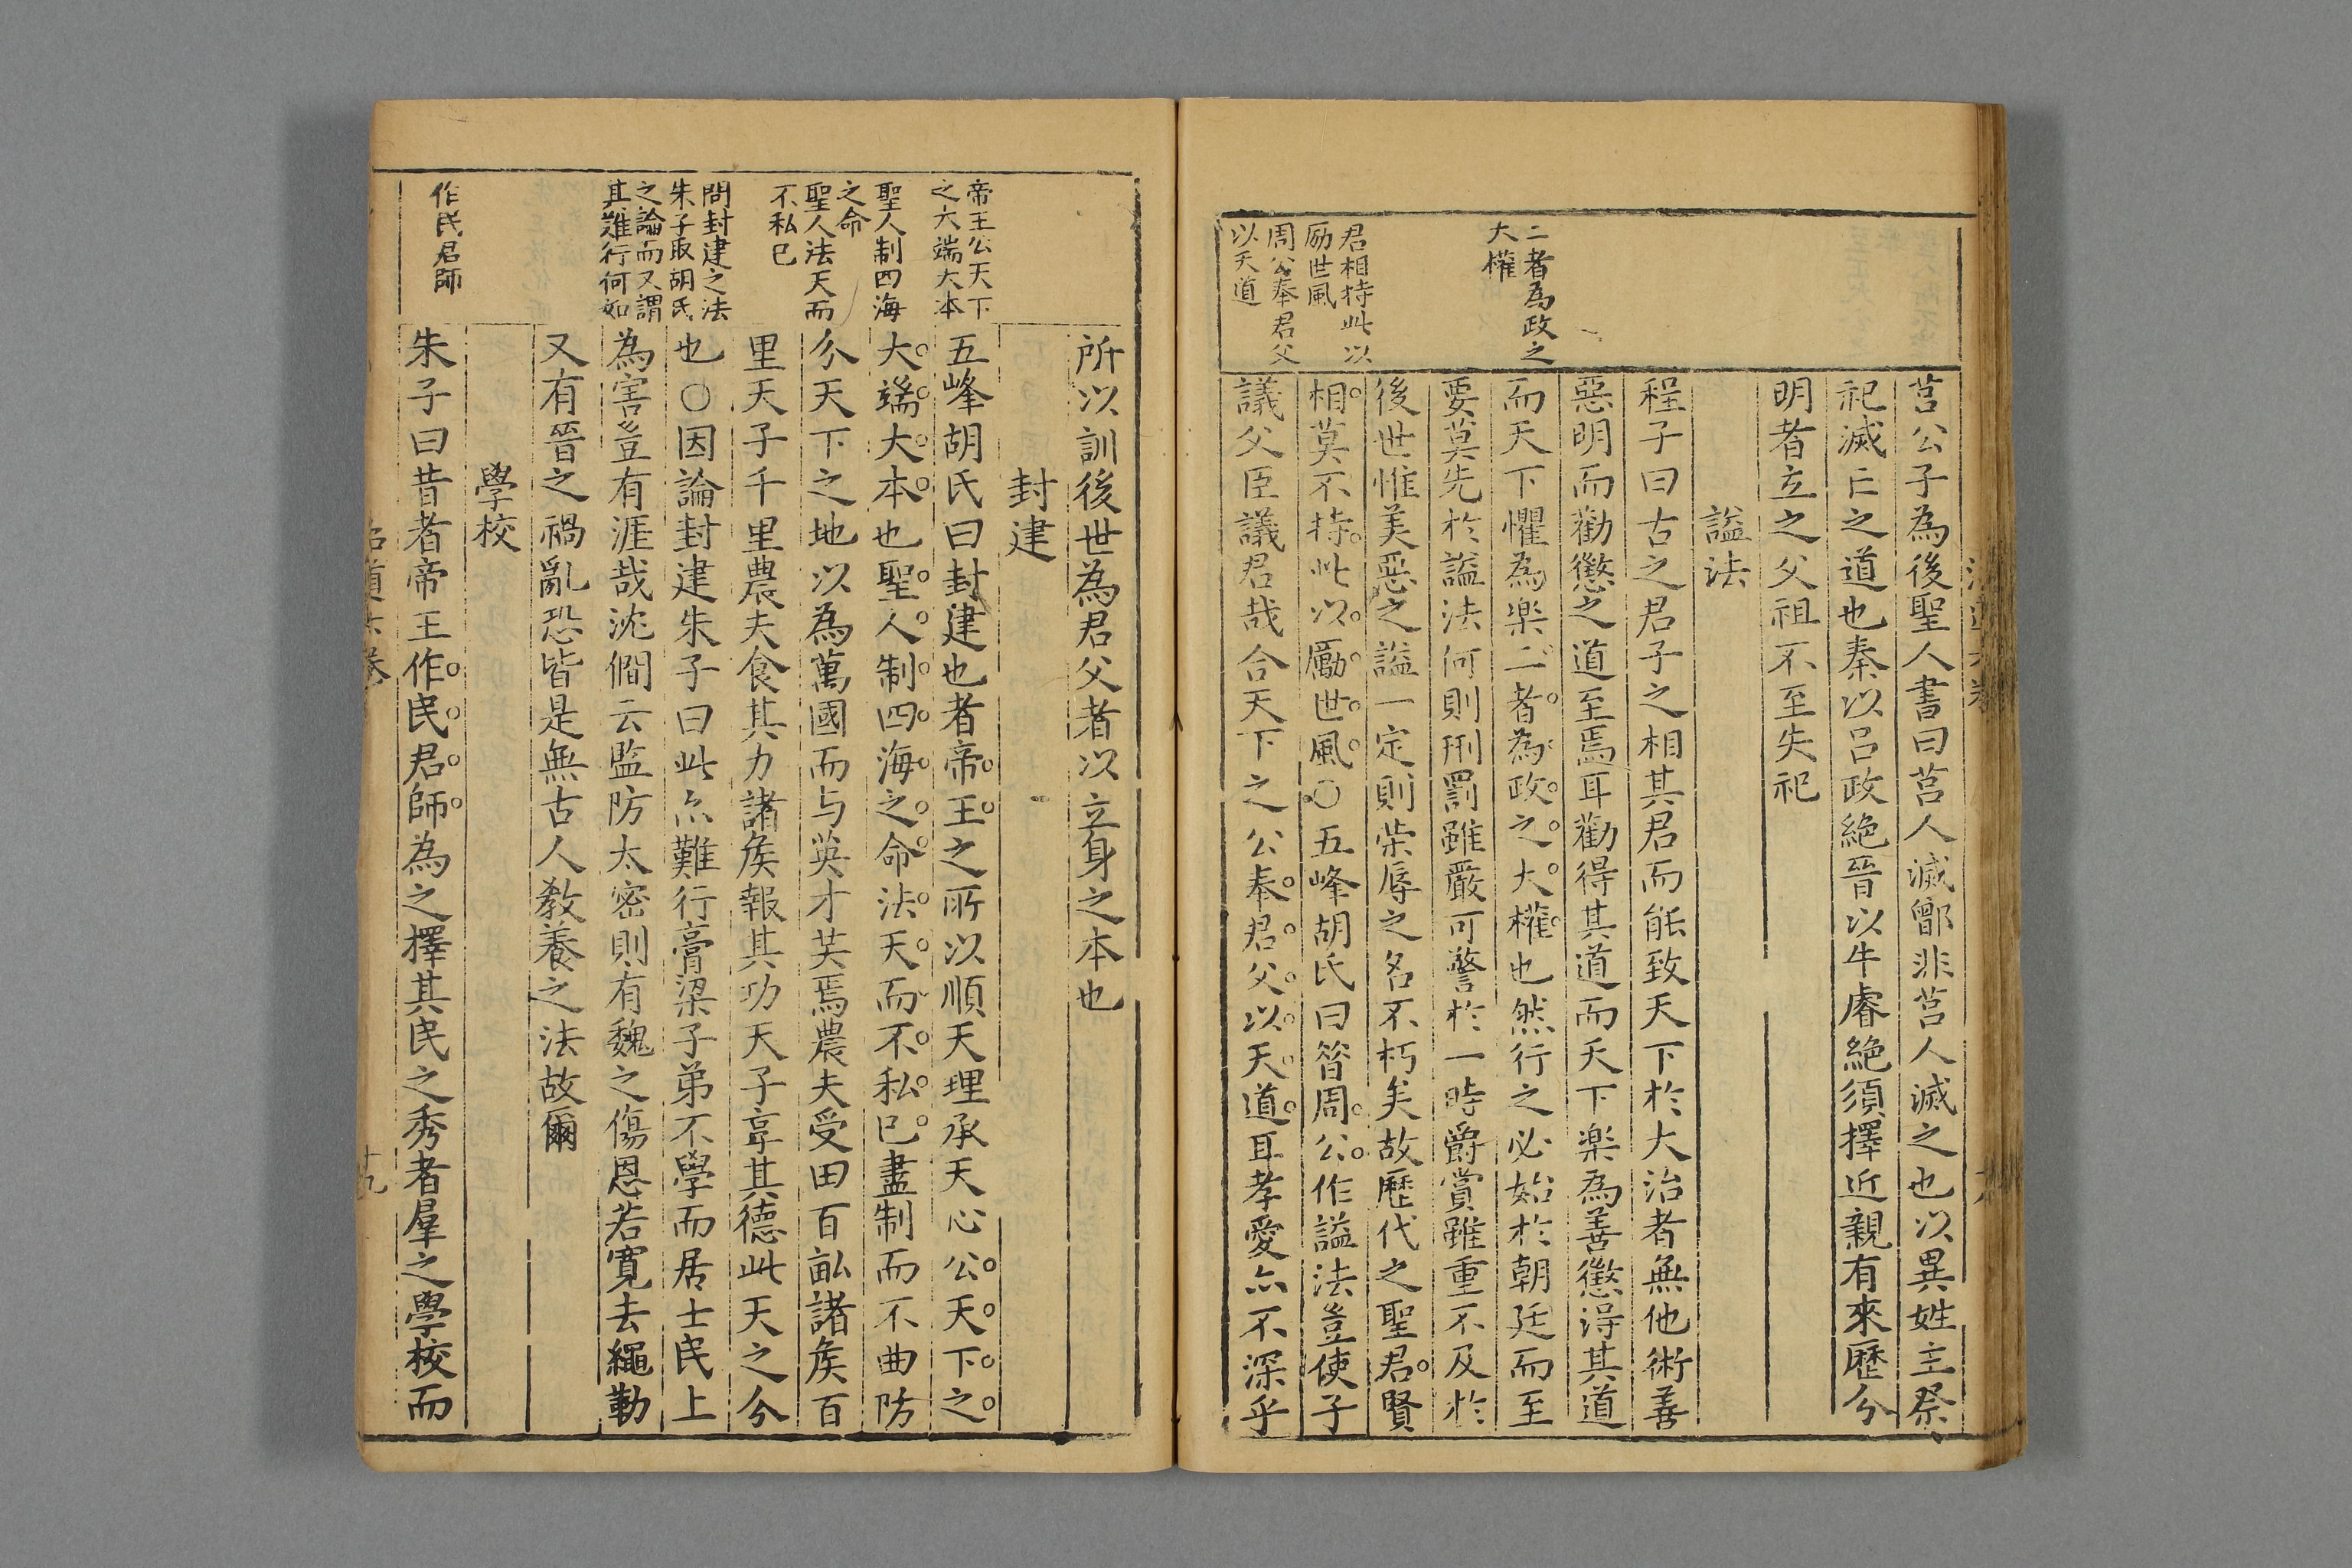 莒公子為後聖人書曰莒人滅鄫非莒人滅之也以異姓主祭
祀滅亡之道也秦以吕政絕晉以牛睿絕須擇近親有來歷分
明者立之父祖不至失祀
諡法
程子曰古之君子之相其君而能致天下於大治者無他術善
惡明而勸懲之道至焉耳勸得其道而天下楽為善懲淂其道
二者為政之
大權
而天下懼為楽二者為政之大權也然行之必始於朝廷而至
要莫先於諡法何則刑罰雖嚴可警於一時爵賞雖重不及於
君相持此以
励世風
後世惟美惡之諡一定則荣辱之名不朽矣故歷代之聖君賢
相莫不持此以勵世風○五峰胡氏曰昝周公作諡法豈使子
周公奉君父
以天道
議父臣議君哉合天下之公奉君父以天道耳孝愛亦不深乎
所以訓後世為君父者以立身之本也
封建
帝王公天下
之大端大本
五峰胡氏曰封建也者帝王之所以順天理承天心公天下之
聖人制四海
之命
大端大本也聖人制四海之命法天而不私已盡制而不曲防
聖人法天而
不私已
分天下之地以為萬國而与英才共焉農夫受田百畝諸矦百
里天子千里農夫食其力諸矦報其功天子享其德此天之分
問封建之法
朱子取胡氏
之論而又謂
其難行何如
也○因論封建朱子曰此亦難行膏梁子弟不學而居士民上
為害豈有涯哉沈僩云監防太密則有魏之傷恩若寬去繩勒
又有晉之禍亂恐皆是無古人教養之法故爾
學校
作民君師
朱子曰昔者帝王作民君師為之擇其民之秀者羣之學校而